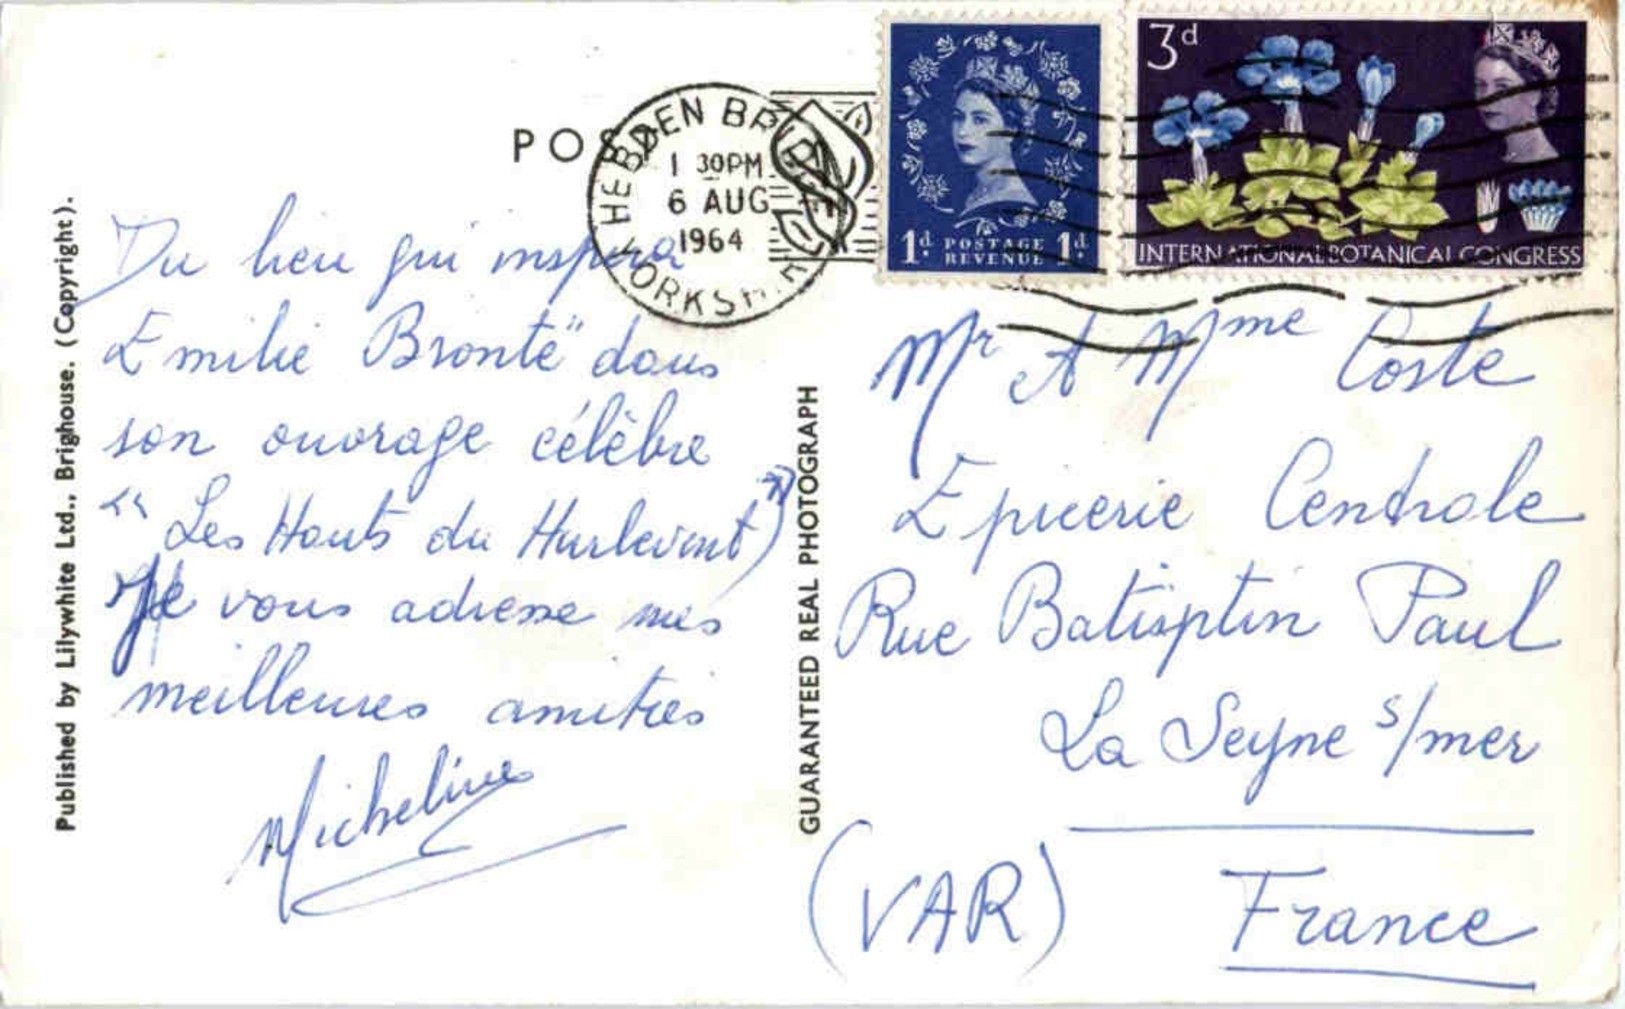 POS
HEBDEN BRIDGE
1 30PM
6 AUG
1964
YORKSHIRE
1d POSTAGE 1d
REVENUE
3d
INTERNATIONAL BOTANICAL CONGRESS
Published by Lilywhite Ltd., Brighouse. (Copyright).
Du lieu qui inspira
Emilie Brontë dans
son ouvrage célèbre
"Les Hauts du Hurlevent")
Je vous adresse mes
meilleures amitiés
Micheline
GUARANTEED REAL PHOTOGRAPH
Mr et Mme Coste
Epicerie Centrale
Rue Batisptin Paul
La Seyne s/mer
(VAR) France